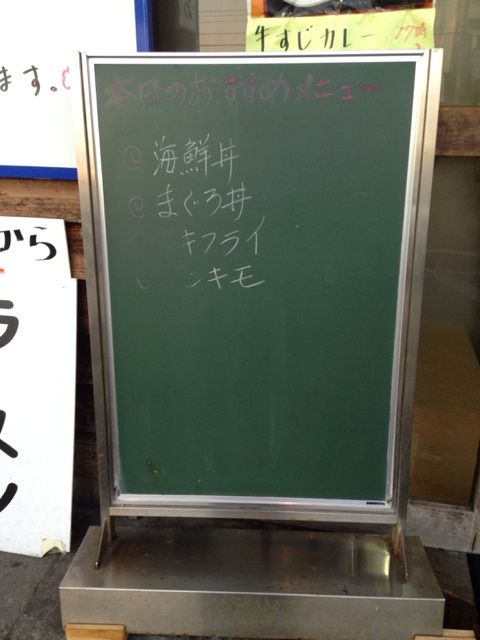 ます。
牛すじカレー
本日のおすすめメニュー
海鮮丼
まぐろ丼
キフライ
ンキモ
から
ラ
ス